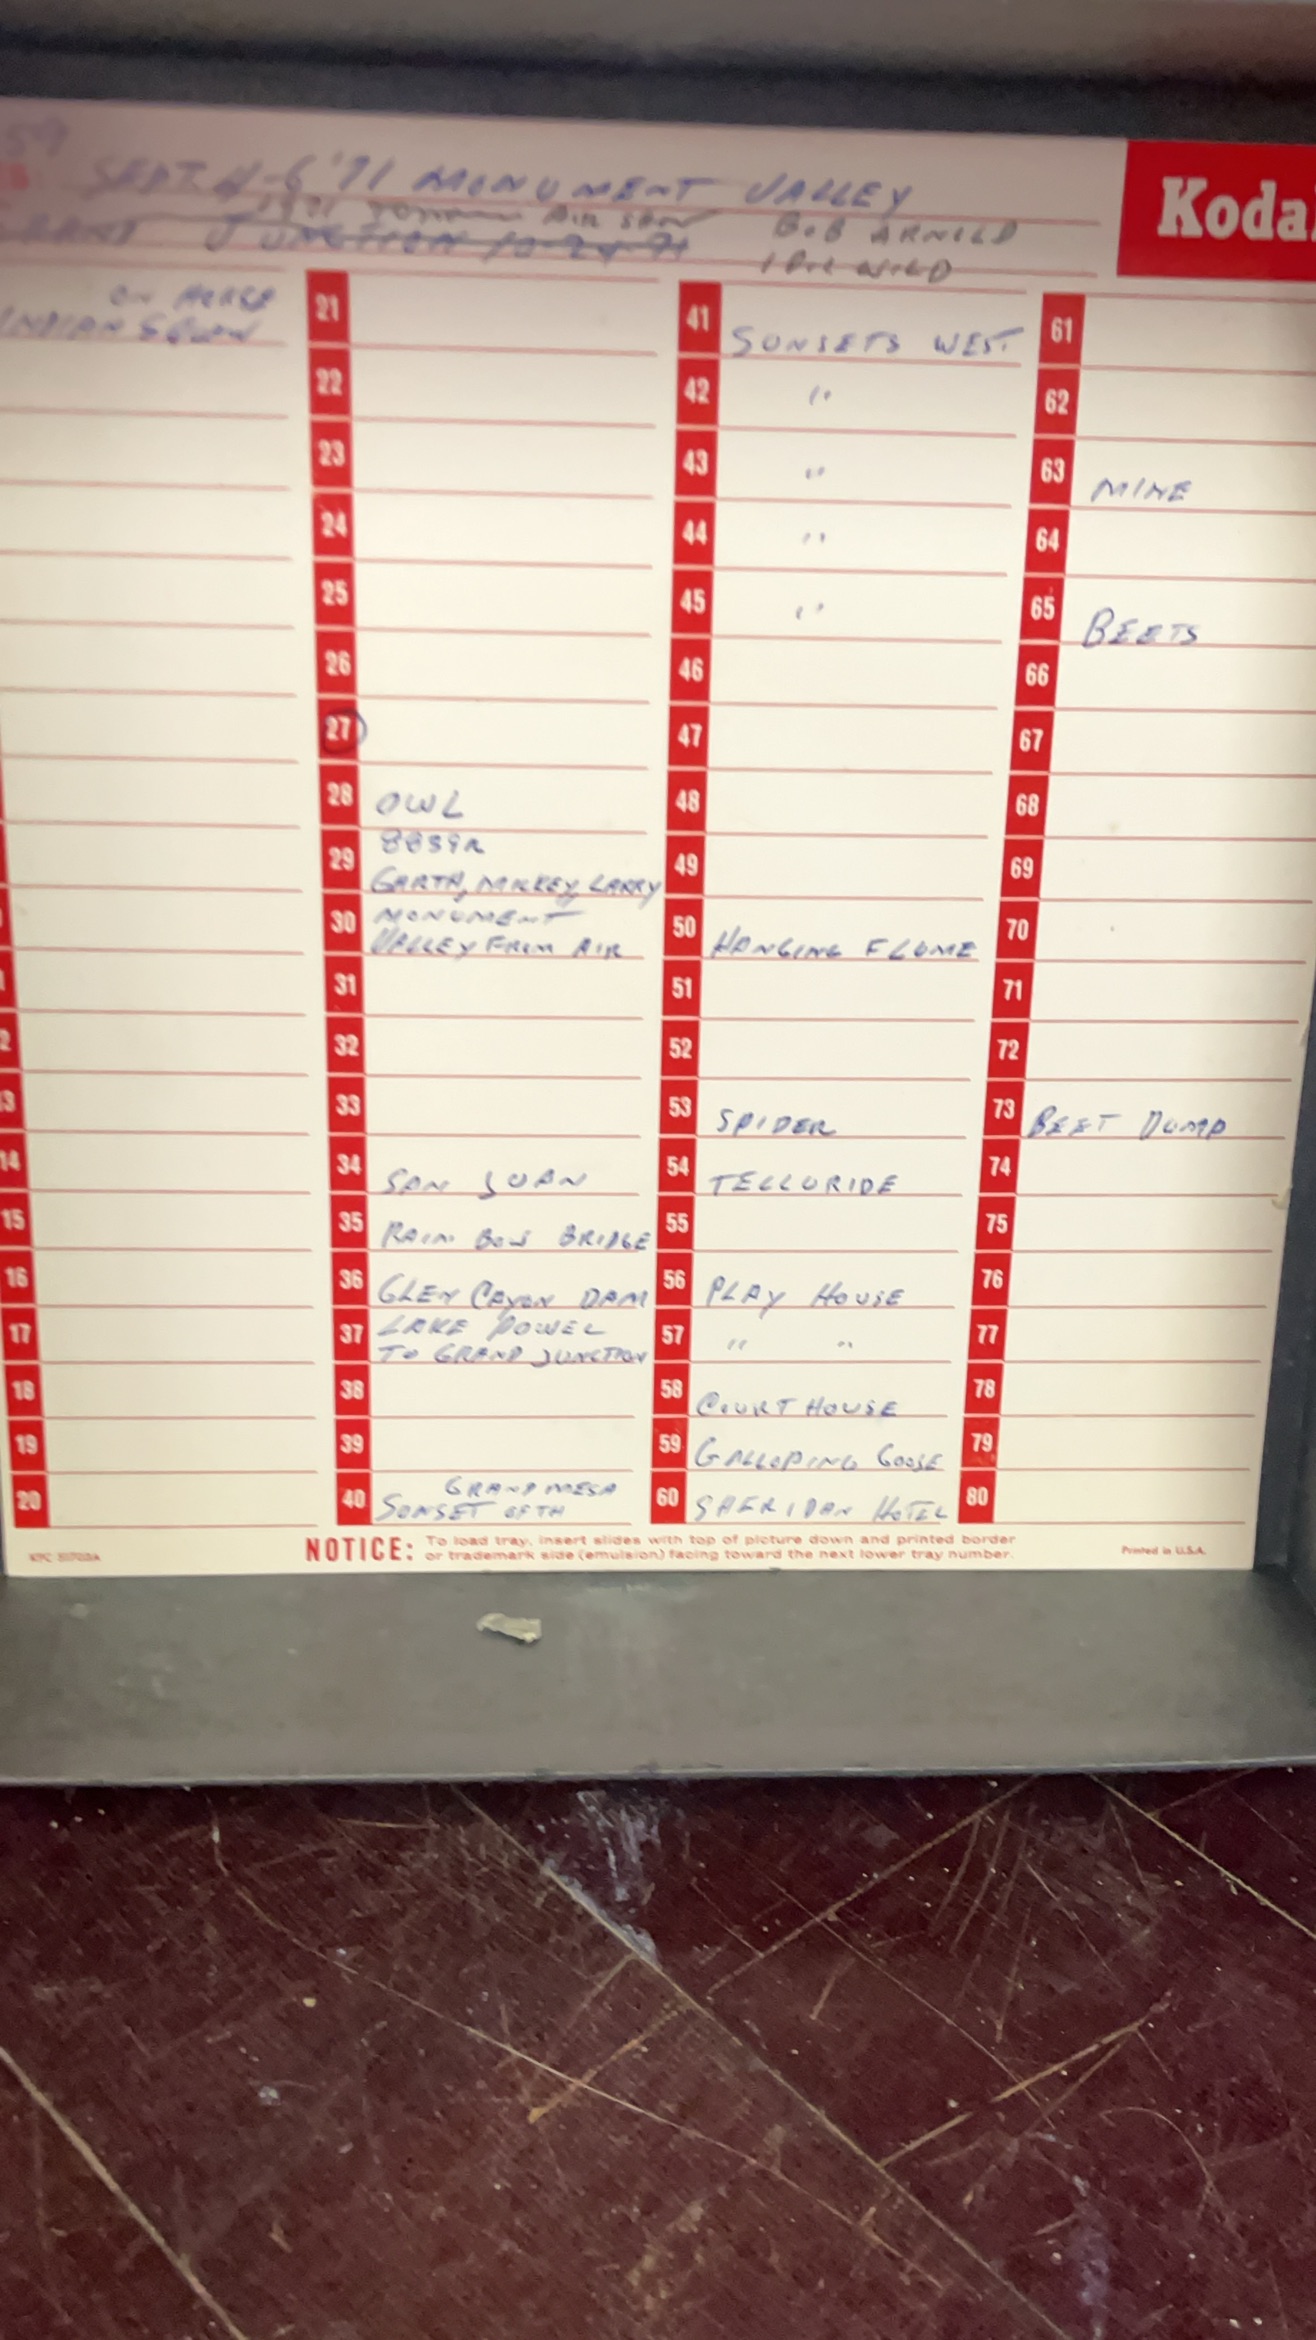 59
SEPT. 4-6 '71 MONUMENT VALLEY
1971 AIR SHOW BOB ARNOLD
JUNCTION 10-24-71
Koda
ON HORSE
INDIAN SQUAW
14
15
16
17
18
19
20
21
22
23
24
25
26
27
28 OWL
29 8889R
GARTH, MICKEY, LARRY
30 MONUMENT
VALLEY FROM AIR
31
32
33
34 SAN JUAN
35 RAIN BOW BRIDGE
36 GLEN CAYON DAM
37 LAKE POWEL
TO GRAND JUNCTION
38
39
40 GRAND MESA
SUNSET OF TH
41 SUNSETS WEST
42 "
43 "
44 "
45 "
46
47
48
49
50 HANGING FLUME
51
52
53 SPIDER
54 TELLURIDE
55
56 PLAY HOUSE
57 " "
58 COURT HOUSE
59 GALLOPING GOOSE
60 SHERIDAN HOTEL
61
62
63 MINE
64
65 BEETS
66
67
68
69
70
71
72
73 BEET DUMP
74
75
76
77
78
79
80
NOTICE: To load tray, insert slides with top of picture down and printed border
or trademark side (emulsion) facing toward the next lower tray number.
Printed in U.S.A.